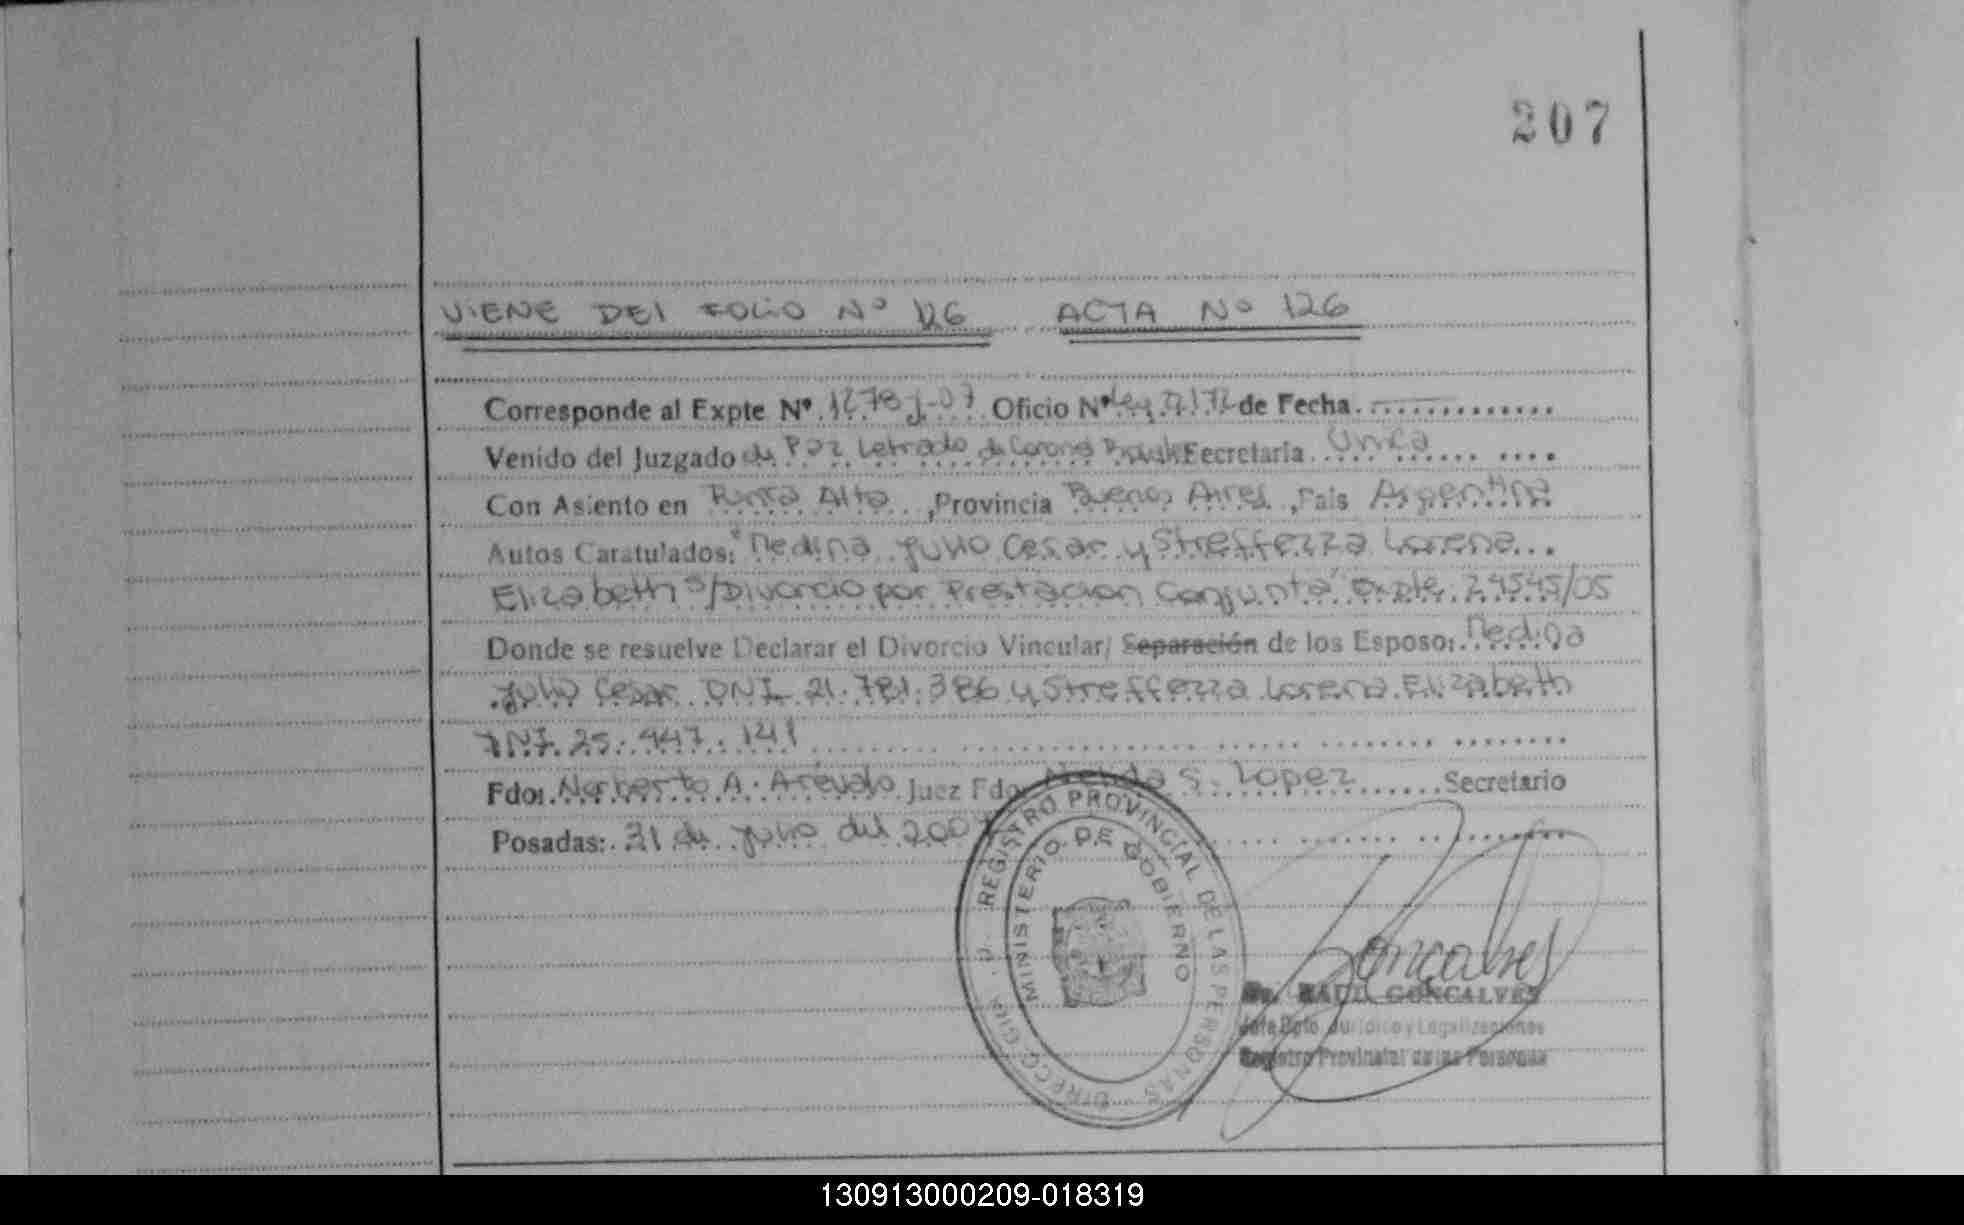 207
VIENE DEL FOLIO Nº 126 ACTA Nº 126
Corresponde al Expte Nº 1278 J-07 Oficio Nº Ley 2172 de Fecha
Venido del Juzgado de Paz Letrado de Coronel Secretaria Unica
Con Asiento en Punta Alta, Provincia Buenos Aires, Pais Argentina
Autos Caratulados: "Medina Julio Cesar y Streffezza Lorena
Elizabeth S/Divorcio por Prestacion Conjunta" Expte. 24545/05
Donde se resuelve Declarar el Divorcio Vincular/ Separación de los Esposo: Medina
Julio Cesar DNI 21.781.386 y Streffezza Lorena Elizabeth
DNI. 25.447.141
Fdo: Norberto A. Arévalo Juez Fdo: S. Lopez Secretario
Posadas: 31 de julio del 200
REGISTRO PROVINCIAL DE LAS PERSONAS
MINISTERIO DE GOBIERNO
Goncalves
RAUL GONCALVES
Jefe Dpto. Juridico y Legalizaciones
Registro Provincial de las Personas
130913000209-018319